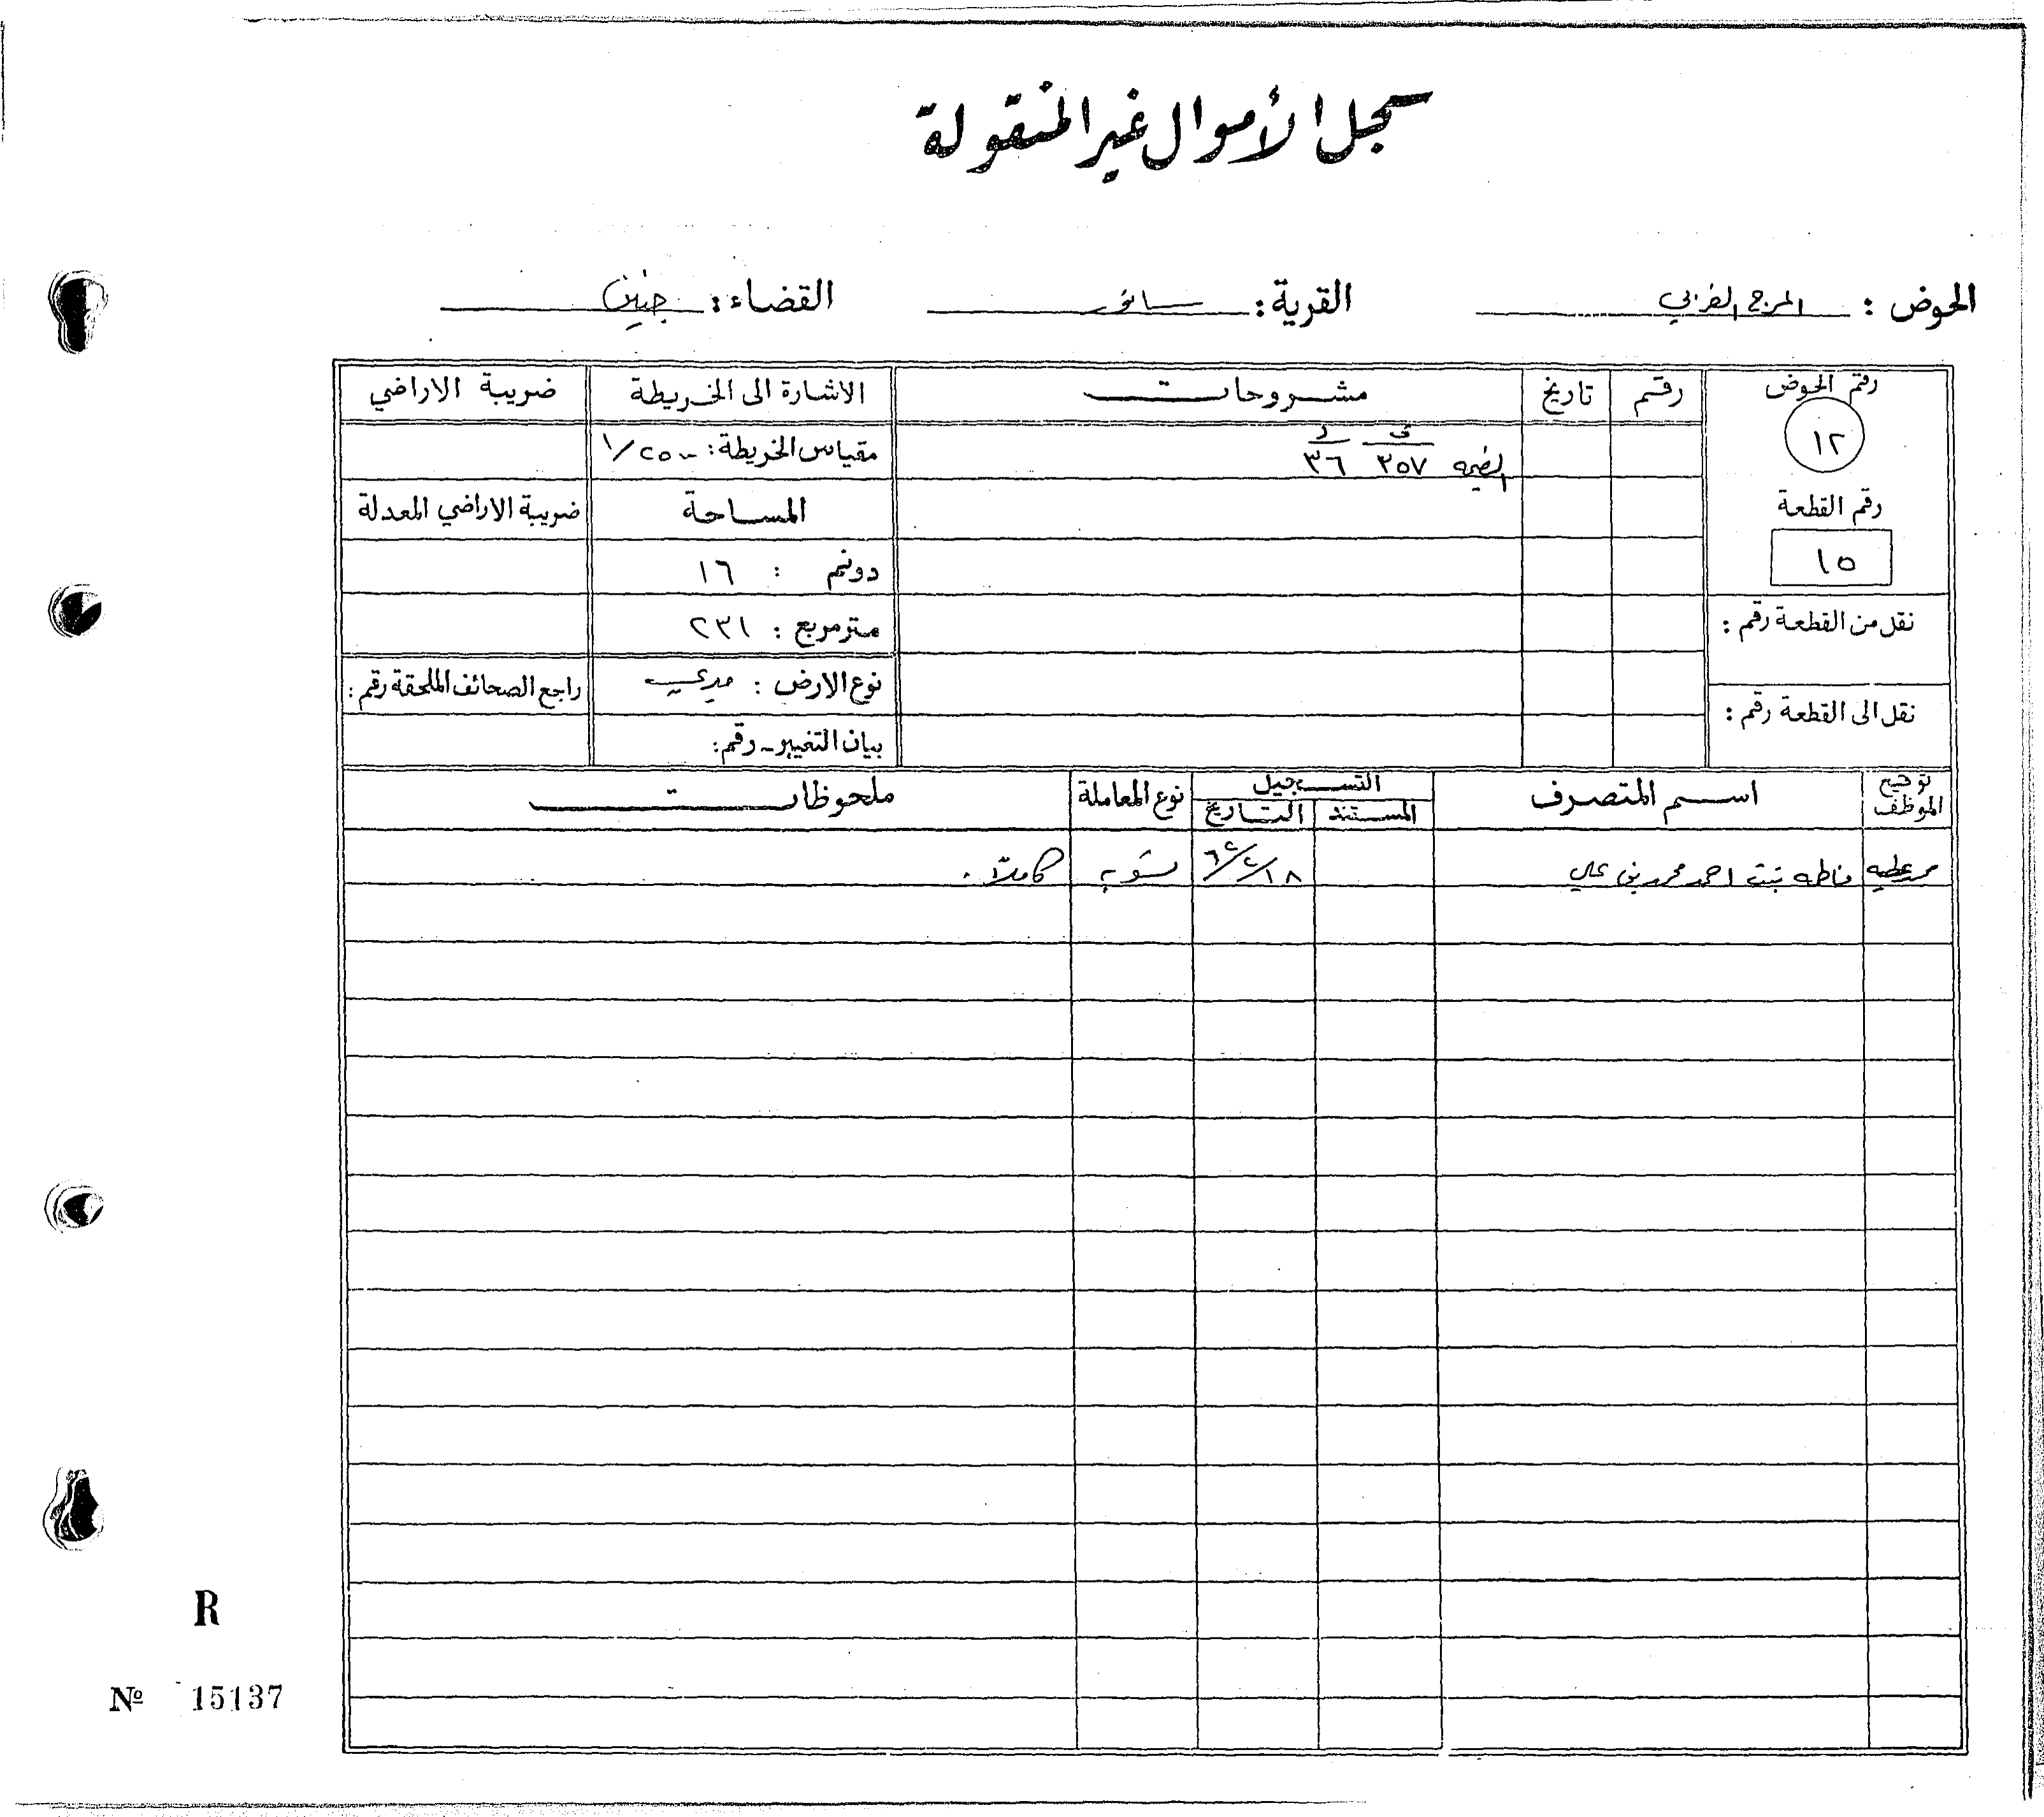 سجل الأموال غير المنقولة
الحوض : المرج الغربي القرية : سانور القضاء : جنين
رقم الحوض رقم تاريخ مشروحات الاشارة الى الخريطة ضريبة الاراضي
١٢ ف د مقياس الخريطة : ١/٢٥٠٠
القيمة ٣٥٧ ٣٦
رقم القطعة المساحة ضريبة الاراضي المعدلة
١٥ دونم : ١٦
نقل من القطعة رقم : متر مربع : ٢٣١
نوع الارض : ميري راجع الصحائف الملحقة رقم :
نقل الى القطعة رقم :
بيان التغيير - رقم :
توقيع الموظف اسم المتصرف التسجيل نوع المعاملة ملحوظات
المستند التاريخ
فاطمه بنت احمد محمد بني علي ١٨/٢/٦٢ تسوية كاملا .
R
№ 15137